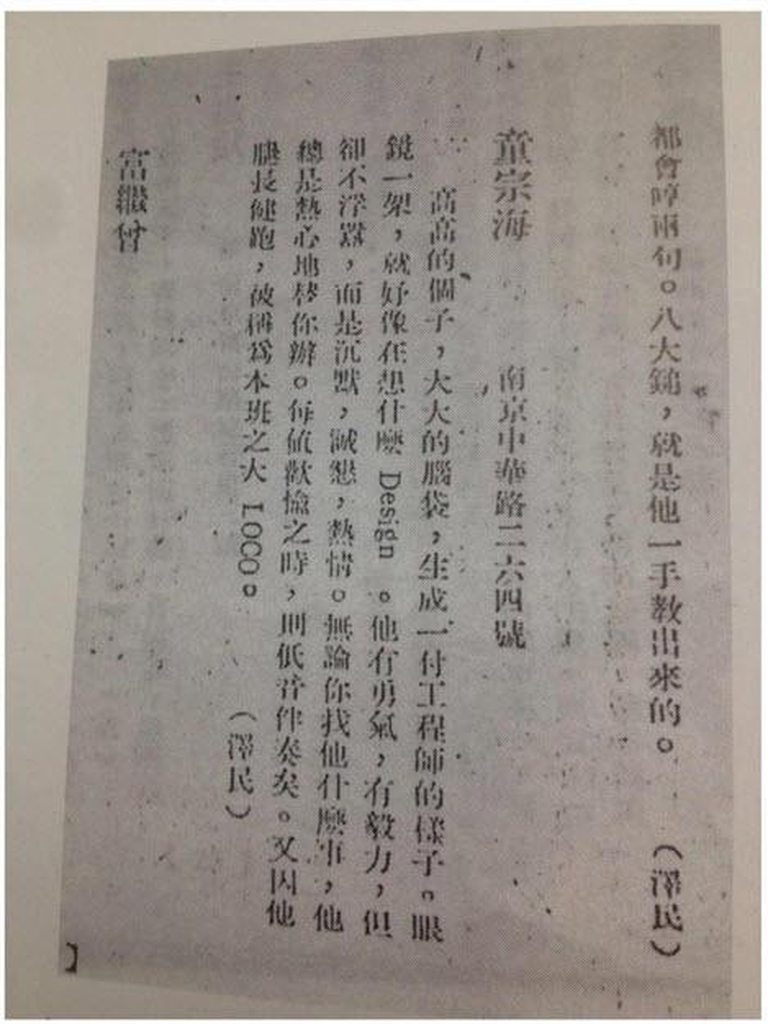 都會哼兩句。八大錘，就是他一手教出來的。　（澤民）
童宗海　南京中華路二六四號
高高的個子，大大的腦袋，生成一付工程師的樣子。眼
鏡一架，就好像在想什麼 Design 。他有勇氣，有毅力，但
卻不浮囂，而是沉默，誠懇，熱情。無論你找他什麼事，他
總是熱心地替你辦。每值歡愉之時，則低音伴奏矣。又因他
腿長健跑，被稱為本班之大 LOCO。　（澤民）
富繼曾